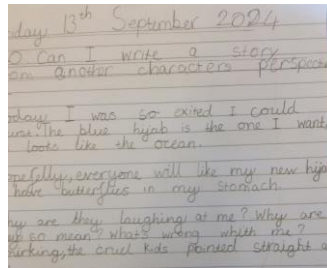 day 13th September 2024
O Can I write a story
om another characters perspect
day I was so exited I could
urst. The blue hijab is the one I want
looks like the ocean.
pefully, everyone will like my new hija
have butterflies in my stomach.
hy are they laughing at me? Why are
so mean? Whats wrong whith me?
the cruel kids pointed straight a